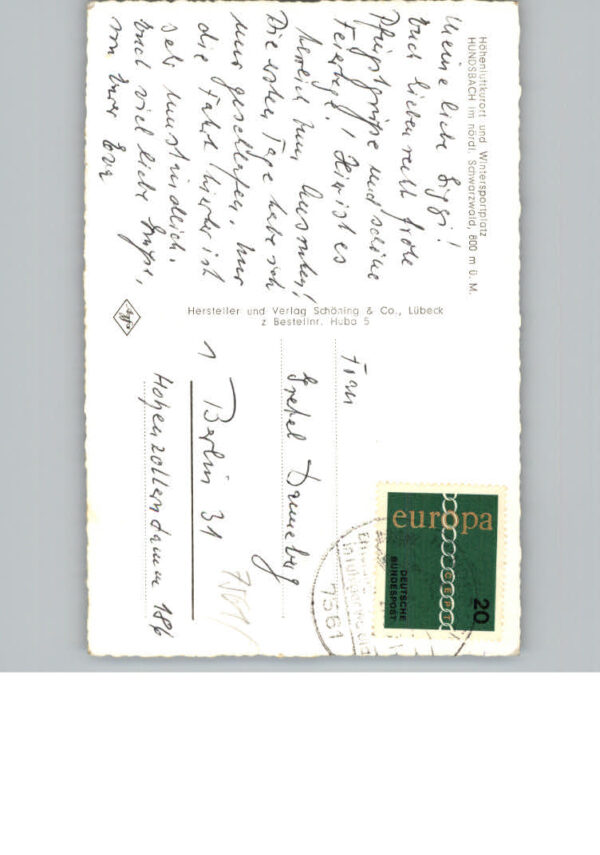 Höhenluftkurort und Wintersportplatz
HUNDSBACH im nördl. Schwarzwald, 800 m ü. M.
Meine liebe Siggi!
Euch lieben recht frohe
Pfingstgrüße und schöne
Feiertage! Hier ist es
herrlich zum Ausruhen!
Die ersten Tage habe ich
nur geschlafen, nur
die Fahrt hierher ist
sehr umständlich.
Euch viel liebe Grüße,
von Eurer Eva
Hersteller und Verlag Schöning & Co., Lübeck
z Bestellnr. Huba 5
Frau
Gretel
1 Berlin 31
Hohenzollerndamm 186
7561
europa
DEUTSCHE
BUNDESPOST
20
7561